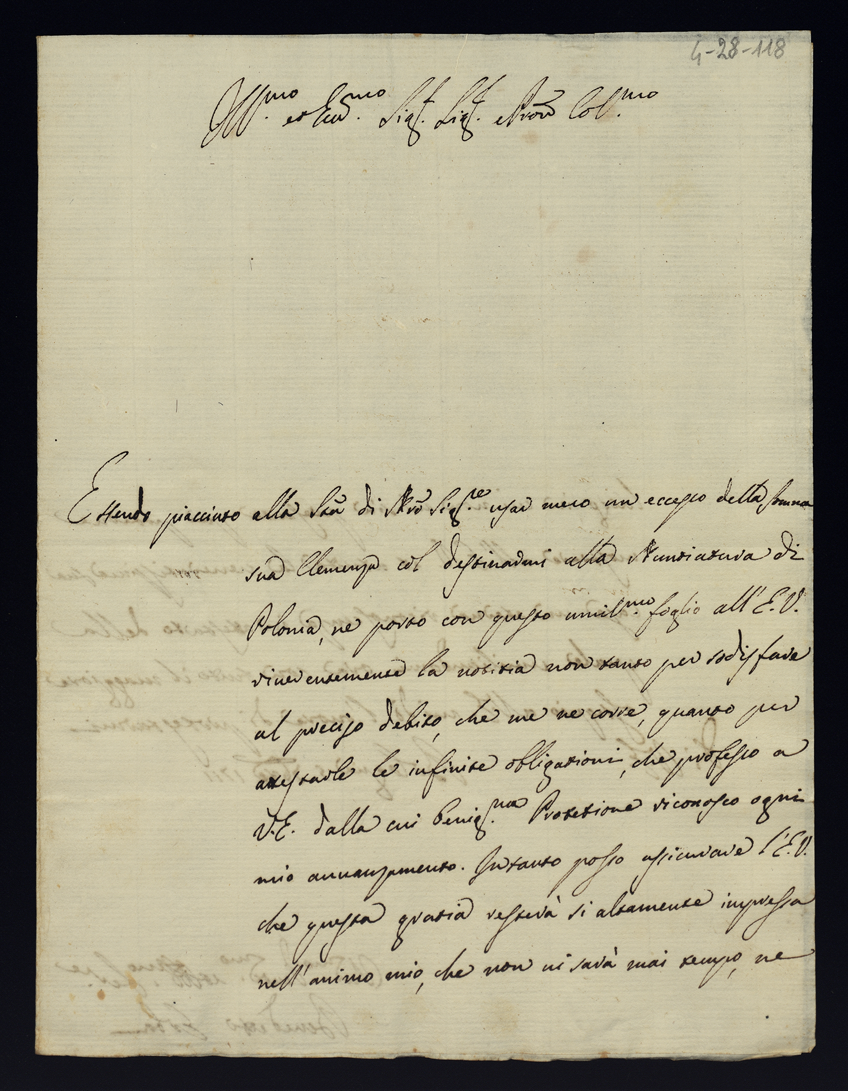 4-28-118
Ill.mo et Ecc.mo Sig.r Sig.r e Pron Col.mo
Essendo piacciuto alla Stà di Nrô Sig.re usar meco un eccesso della somma
sua Clemenza col destinarmi alla Nuntiatura di
Polonia, ne porto con questo umil.mo foglio all'E.V.
riverentemente la notitia non tanto per sodisfare
al preciso debito, che me ne corre, quanto per
attestarle le infinite obligationi, che professo a
V.E. dalla cui benig.ma Protetione riconosco ogni
mio avvanzamento. Intanto posso assicurare l'E.V.
che questa gratia resterà si altamente impressa
nell'animo mio, che non vi sarà mai tempo, ne